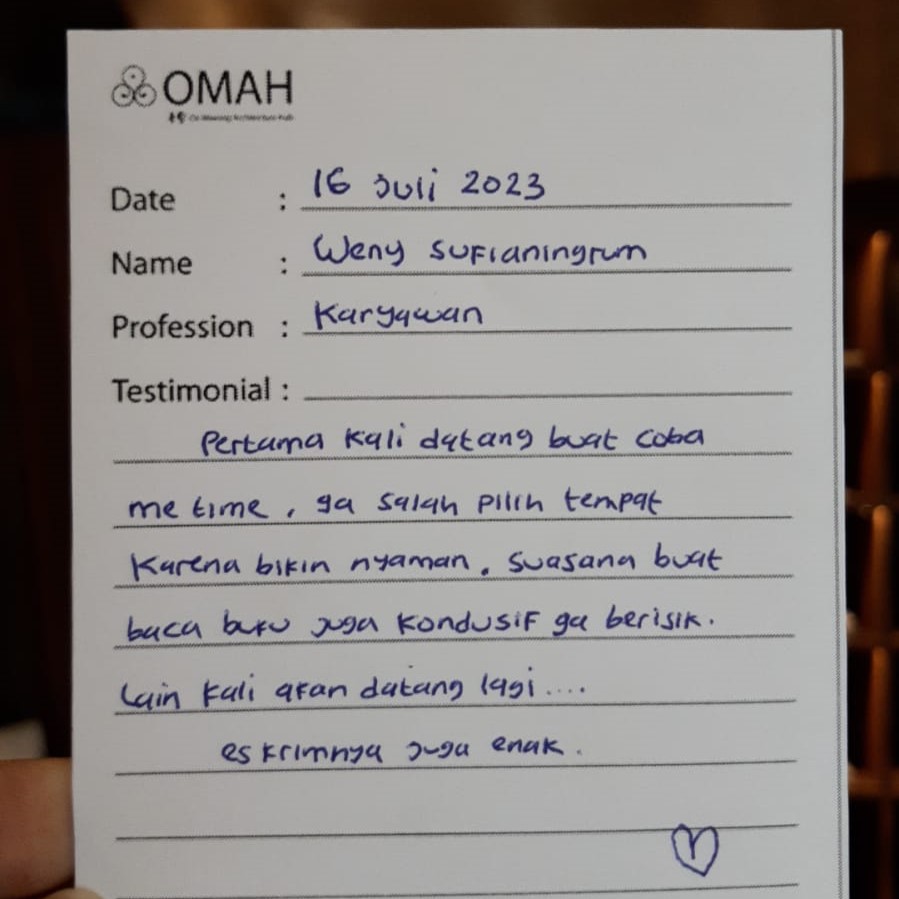 OMAH
Date : 16 Juli 2023
Name : Weny Sufianingrum
Profession : Karyawan
Testimonial :
Pertama kali datang buat coba
me time, ga salah pilih tempat
karena bikin nyaman. Suasana buat
baca buku juga kondusif ga berisik.
Lain kali akan datang lagi....
es krimnya juga enak.